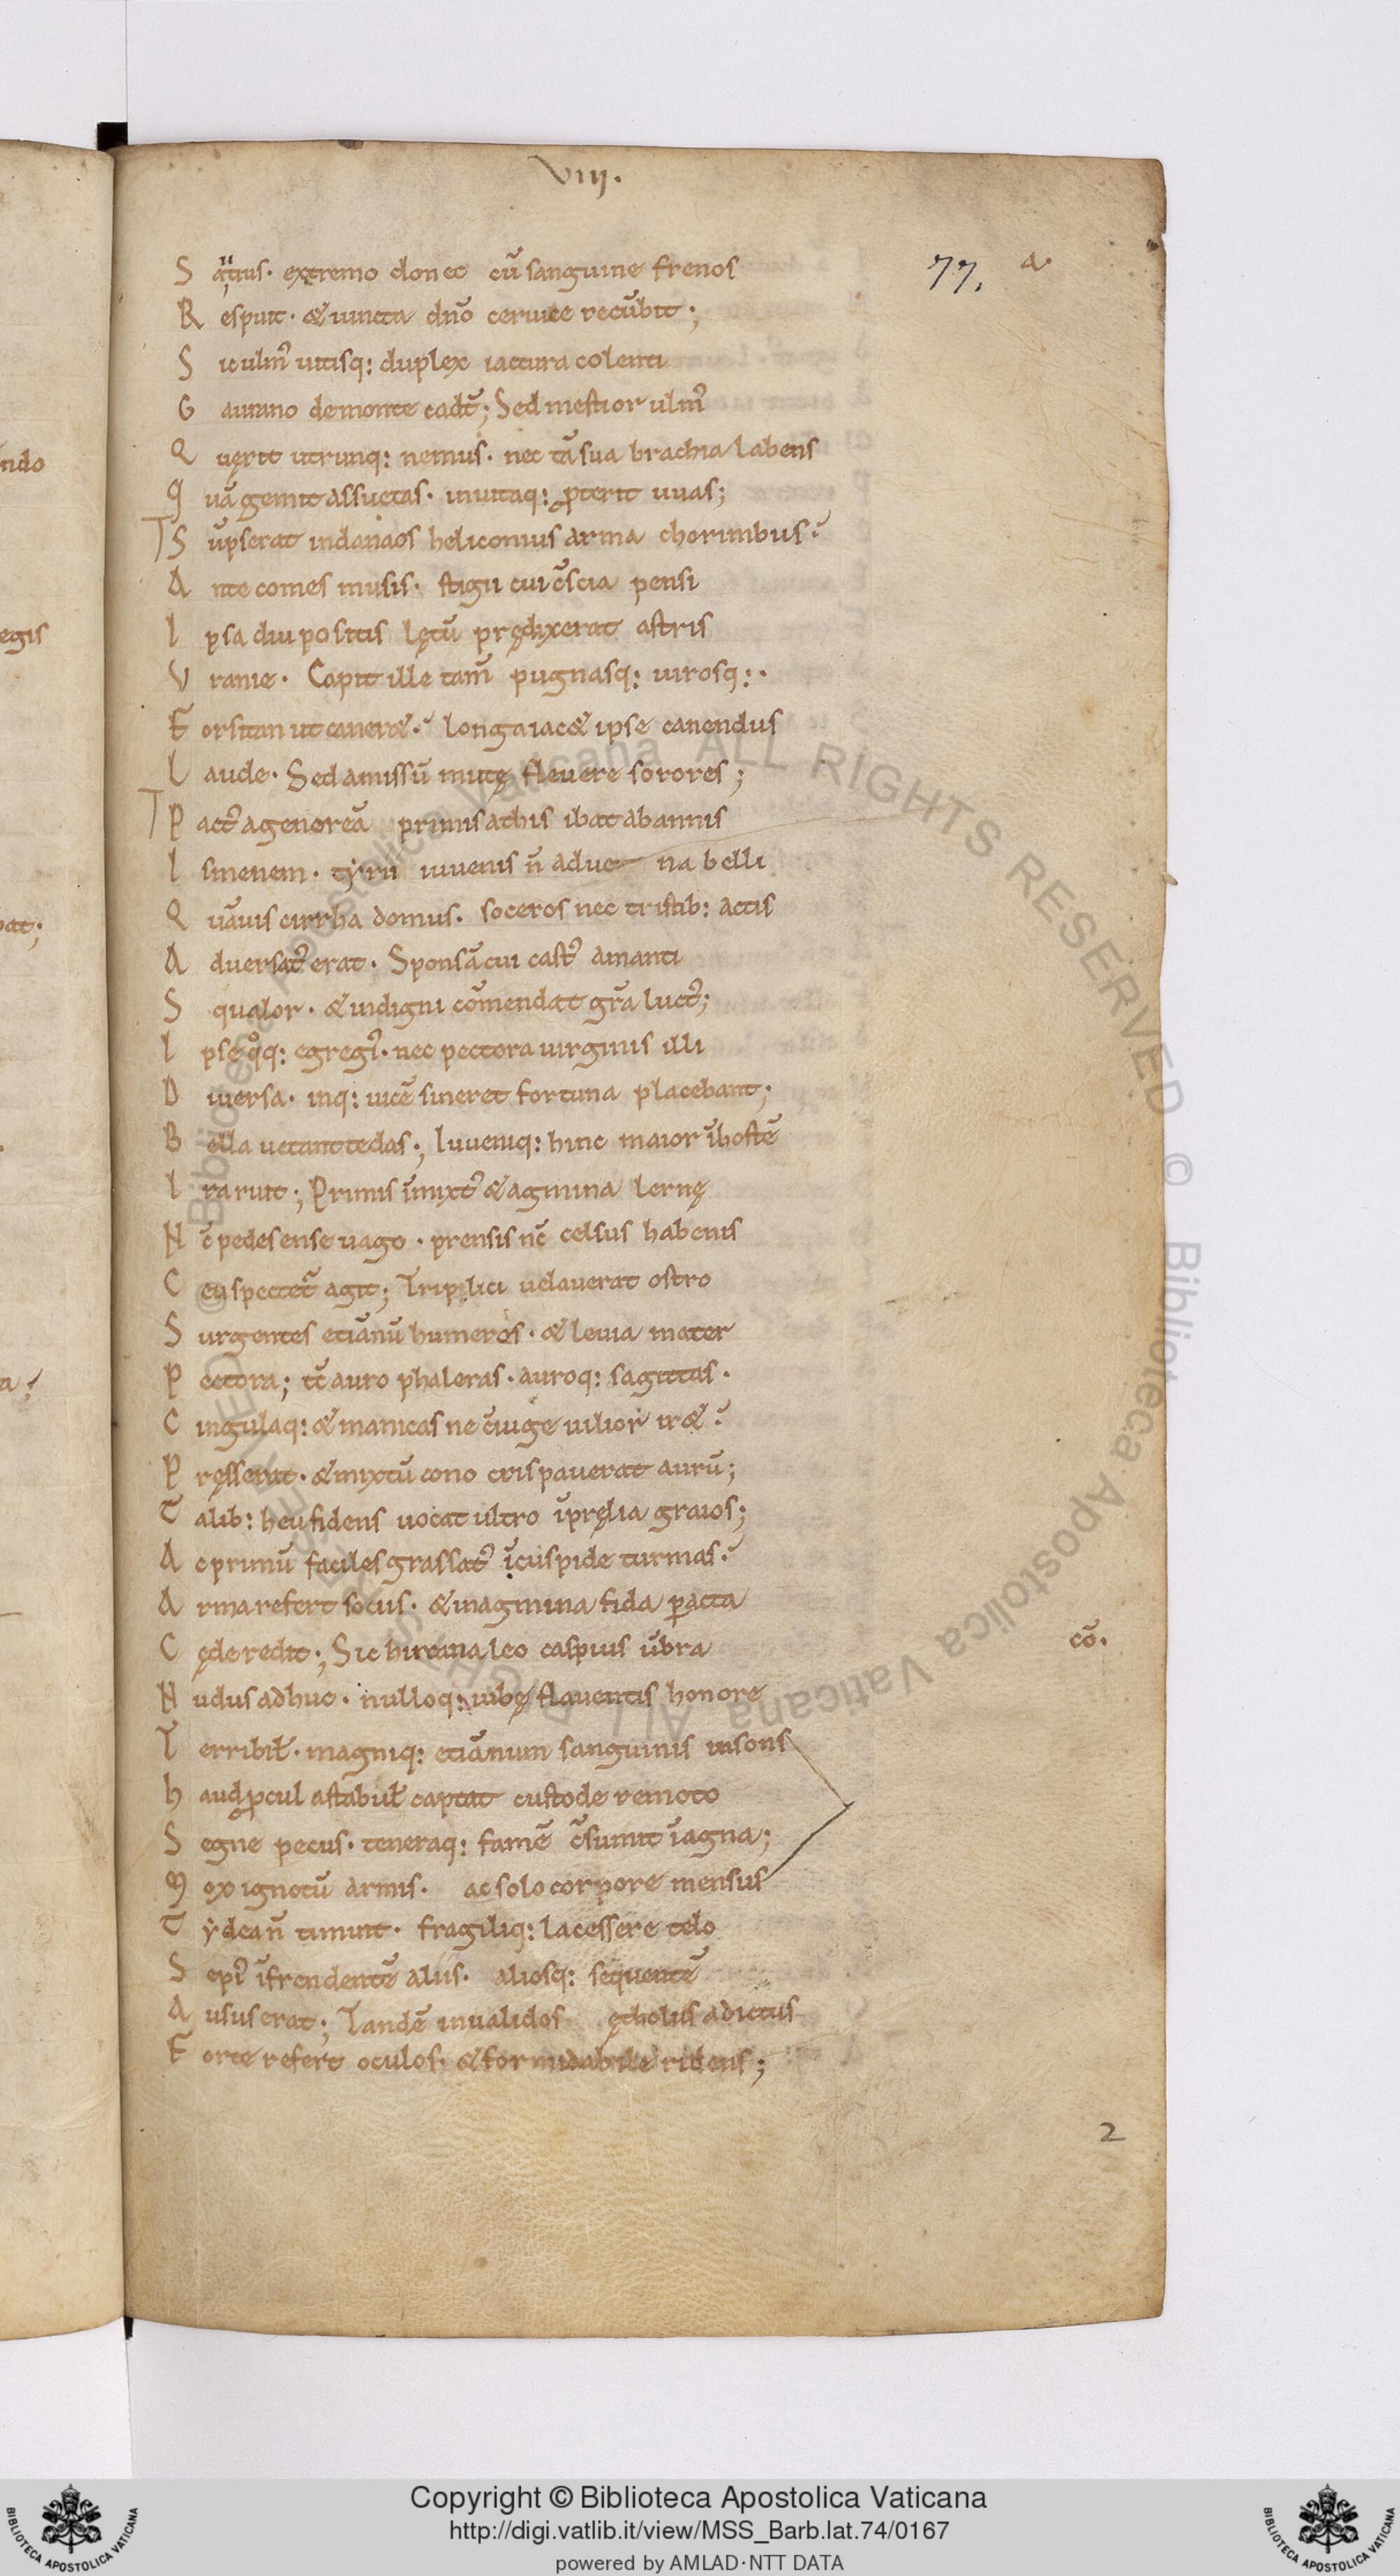 VIII.
77. a
S aucius· extremo donec cū sanguine frenos
R espuit· & iuncta dn̄o ceruice recūbit;
S ic ulm᷒ uitisq: duplex iactura colenti
G aurano demonte cadt̄; Sed mestior ulm᷒
Q uęrit utrunq: nemus· nec tā sua brachia labens
Q uā gemit assuetas· inuitaq: ꝓterit uuas;
S ūpserat indanaos heliconius arma chorinbus·
A nte comes musis· stigii cui c̄scia pensi
I psa diu positis lętū prędixerat astris
V ranie· Capit ille tam̄ pugnasq: uirosq:·
F orsitan ut caner&· longa iac& ipse canendus
L aude· Sed amissū mutę fleuere sorores;
P act᷒ agenoreā primis athis ibat abannis
I smenem· tyrii iuuenis n̄ adue na belli
Q uāuis cirrha domus· soceros nec tristib: actis
A duersat᷒ erat· Sponsā cui cast᷒ amanti
S qualor· & indigni cōmendat gr̄a luct᷒;
I pse qq̊: egregi᷒· nec pectora uirginis illi
D iuersa· inq: uicē sineret fortuna placebant;
B ella uetant tedas·, Iuueniq: hinc maior ī hostē
I ra ruit; Primis īmixt᷒ & agmina lernę
N c̄ pedes ense uago· prensis nc̄ celsus habenis
C eu spectet᷒ agit; Triplici uelauerat ostro
S urgentes etiānū humeros· & leuia mater
P ectora; tc̄ auro phaleras· auroq: sagittas·
C ingulaq: & manicas ne c̄iuge uilior ir&·
P resserat· & mixtū cono crispauerat aurū;
T alib: heu fidens uocat ultro ī pręlia graios;
A c primū faciles grassat᷒ ī cuspide turmas·
A rma refert sociis· & inagmina fida pacta
C ęde redit·, Sic hircana leo caspius ūbra
N udus adhuc· nulloq: iubę flauentis honore
T erribil̄· magniq: etiānum sanguinis insons
h aud ꝓcul astabul̄ captat custode remoto
S egne pecus· teneraq: famē c̄sumit ī agna;
M ox ignotū armis· ac solo corpore mensus
T ydea n̄ timuit· fragiliq: lacessere telo
S epi᷒ īfrendentē aliis· aliosq: sequentē
A ususerat·, Tandē inualidos ętholus adictus
F orte refert oculos· & formidabile ridens;
cō.
2
Copyright © Biblioteca Apostolica Vaticana
http://digi.vatlib.it/view/MSS_Barb.lat.74/0167
powered by AMLAD·NTT DATA